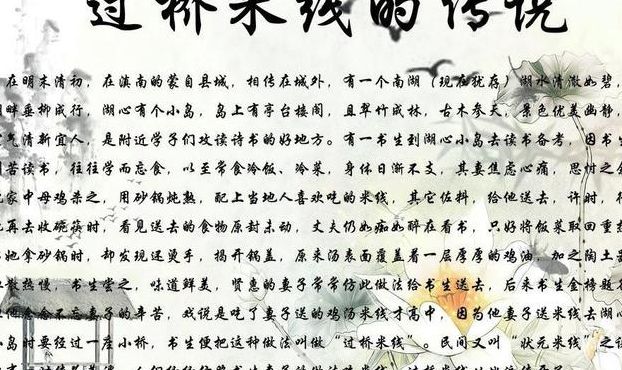 过桥米线的传说
在明末清初，在滇南的蒙自县城，相传在城外，有一个南湖（现在犹存）湖水清澈如碧，
湖畔垂柳成行，湖心有个小岛，岛上有亭台楼阁，且翠竹成林，古木参天，景色优美幽静，
空气清新宜人，是附近学子们攻读诗书的好地方。有一书生到湖心小岛去读书备考，因书生
刻苦读书，往往学而忘食，以至常食冷饭、冷菜，身体日渐不支，其妻焦虑心痛，思忖之余
把家中母鸡杀之，用砂锅炖熟，配上当地人喜欢吃的米线，其它佐料，给他送去，许时，待
她再去收碗筷时，看见送去的食物原封未动，丈夫仍如痴如醉在看书，只好将饭菜取回重热
当她拿砂锅时，却发现还烫手，揭开锅盖，原来汤表面覆盖着一层厚厚的鸡油，加之陶土器
散热慢，书生尝之，味道鲜美，贤惠的妻子常常仿此做法给书生送去，后来书生金榜题名
但他念念不忘妻子的辛苦，戏说是吃了妻子送的鸡汤米线才高中，因为他妻子送米线去湖心
小岛时要经过一座小桥，书生便把这种做法叫做“过桥米线”。民间又叫“状元米线”